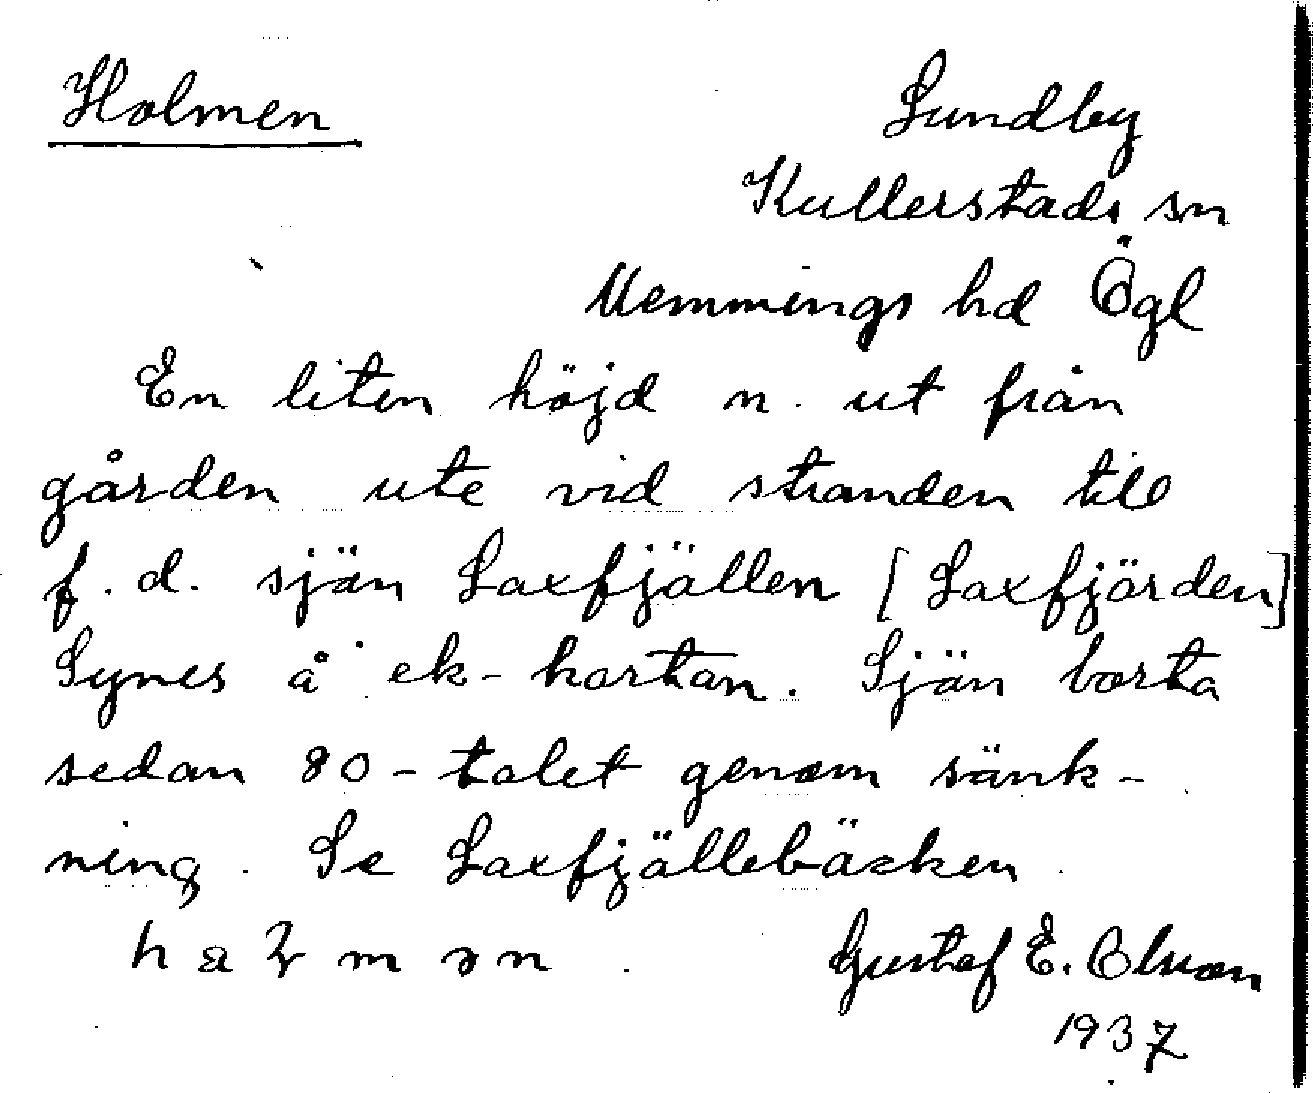 Holmen
Lundby
Kullerstads sn
Memmings hd Ögl
En liten höjd n. ut från
gården ute vid stranden till
f. d. sjön Laxfjällen [Laxfjärden]
Synes å ek-kartan. Sjön borta
sedan 80-talet genom sänk-
ning. Se Laxfjällebäcken
Gustaf E. Olsson
1937